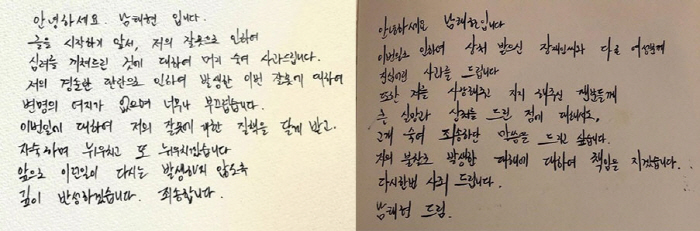 안녕하세요. 남태현 입니다.
글을 시작하기 앞서, 저의 잘못으로 인하여
심려를 끼쳐드린 것에 대하여 머리 숙여 사과드립니다.
저의 경솔한 판단으로 인하여 발생한 이번 잘못에 대하여
변명의 여지가 없으며 너무나 부끄럽습니다.
이번일에 대하여 저의 잘못에 대한 질책을 달게 받고,
자숙하며 뉘우치고 또 뉘우치겠습니다
앞으로 이런일이 다시는 발생하지 않도록
깊이 반성하겠습니다. 죄송합니다.
안녕하세요 남태현입니다
이번일로 인하여 상처 받으신 장재인씨와 다른 여성분께
진심어린 사과를 드립니다
또한 저를 사랑해주고 지지 해주신 팬분들께
큰 실망과 상처를 드린 점에 대해서도,
고개 숙여 죄송하단 말씀을 드리고 싶습니다.
저의 불찰로 발생한 피해에 대하여 책임을 지겠습니다.
다시한번 사죄 드립니다.
남태현 드림.